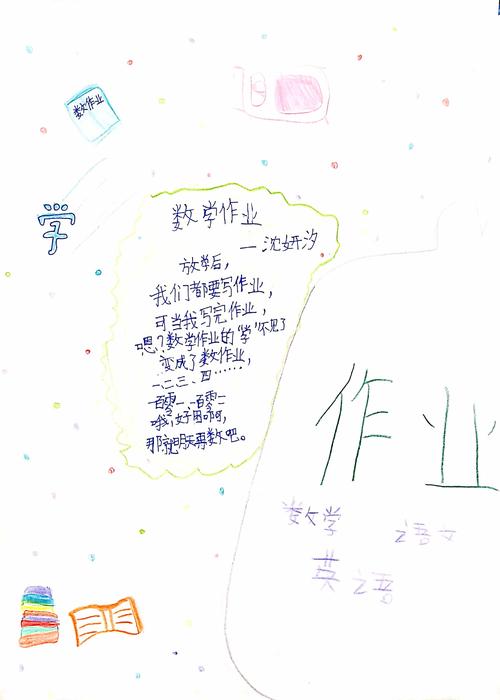 数作业
学
数学作业
—沈妍汐
放学后，
我们都要写作业，
可当我写完作业，
嗯？数学作业的“学”不见了
变成了数作业，
一二三、四……，
一百零一、一百零二
哦，好困啊，
那就明天再数吧。
作业
数学 语文
英语